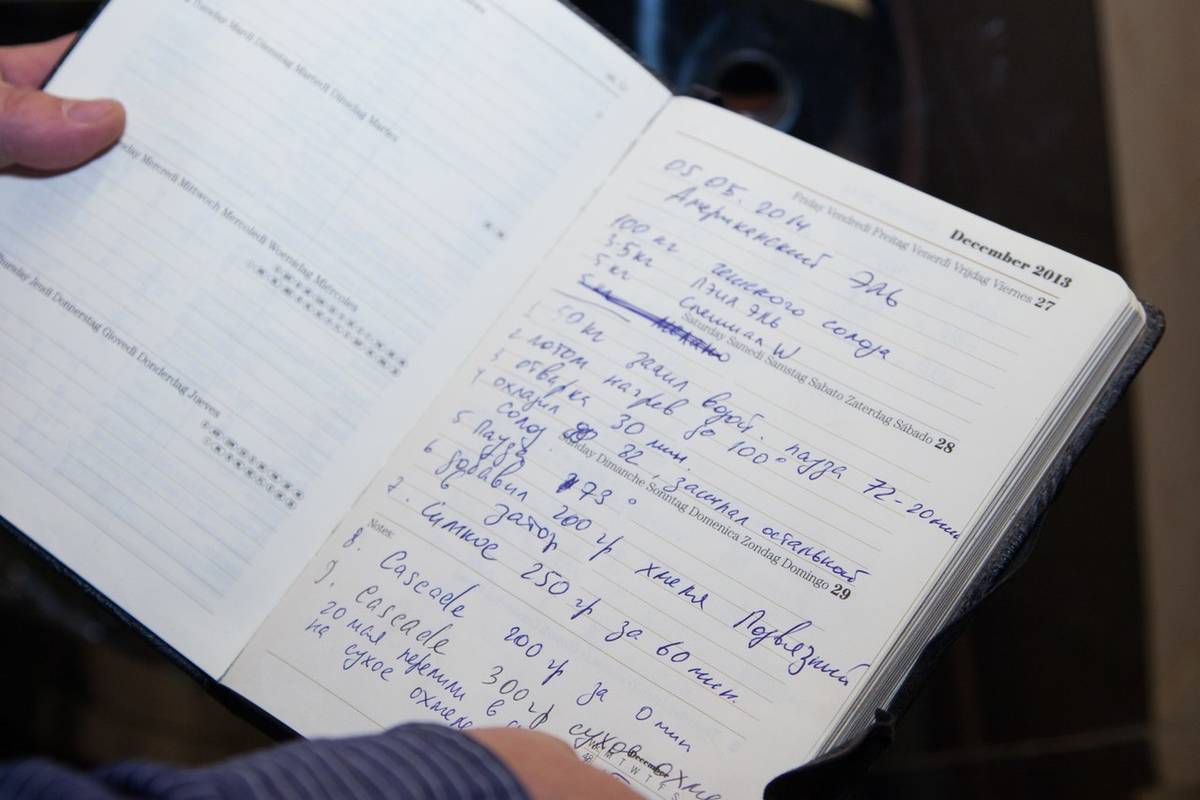 Tuesday Mardi Dienstag Martedì Dinsdag Martes
Mercredi Mittwoch Mercoledì Woensdag Miércoles
Thursday Jeudi Donnerstag Giovedì Donderdag Jueves
December 2013
Friday Vendredi Freitag Venerdì Vrijdag Viernes 27
05.05.2014
Американский Эль
100 кг чешского солода
3.5 кг Пэил Эль
5 кг Спешиал W
Saturday Samedi Samstag Sabato Zaterdag Sábado 28
50 кг залил водой. пауза 72-20 мин
2 потом нагрев до 100°
3 отварка 30 мин.
4 охладил до 82, засыпал остальной
солод
Sunday Dimanche Sonntag Domenica Zondag Domingo 29
5 Пауза 73°
6 добавил 200 гр хмеля Подвязный
в затор
7. Симкое 250 гр за 60 мин.
Notes:
8. Cascade 200 гр за 0 мин
9. Cascade 300 гр сухое охме
20 мая перелили в
на сухое охмеле
December
M T W T F S
48